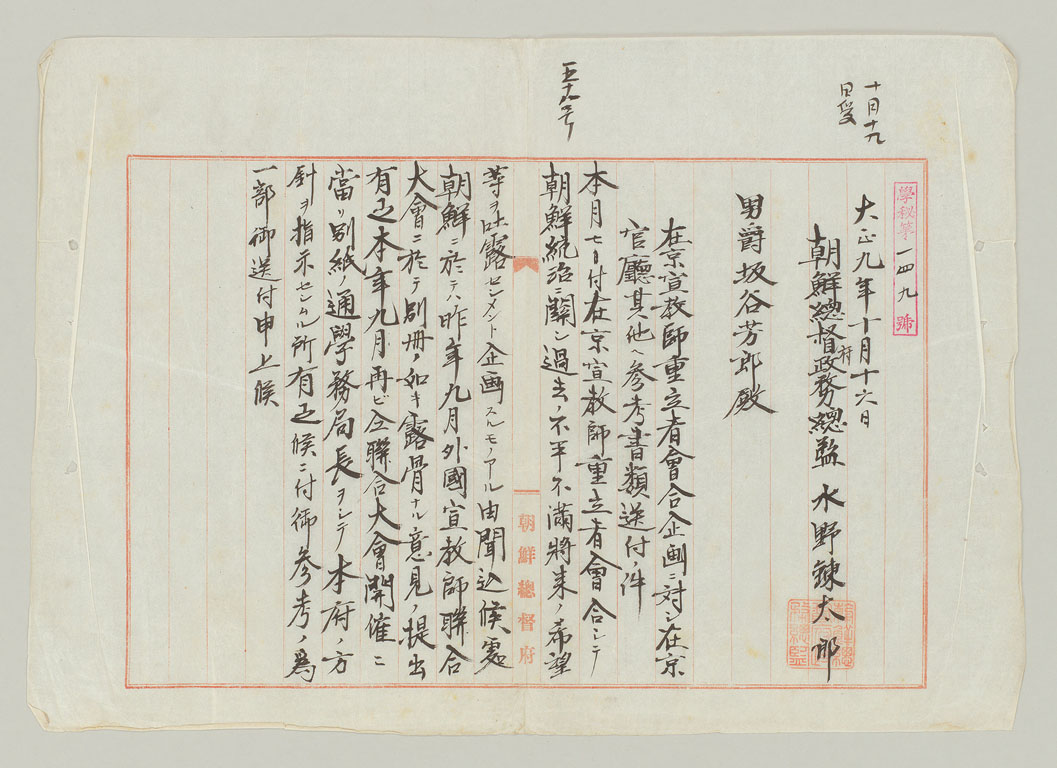 十月十九
日受
五十八号
學秘第一四九號
大正九年十月十六日
朝鮮總督府政務總監 水野錬太郎
男爵坂谷芳郎殿
在京宣教師重立者會合企画ニ対シ在京
官廳其他ヘ参考書類送付ノ件
本月七日付在京宣教師重立者會合シテ
朝鮮統治ニ關シ過去ノ不平不滿將来ノ希望
等ヲ吐露センメント企画スルモノアル由聞込候處
朝鮮ニ於テハ昨年九月外國宣教師聯合
大會ニ於テ別冊ノ如キ露骨ナル意見ノ提出
有之本年九月再ビ仝聯合大會開催ニ
當リ別紙ノ通學務局長ヲシテ本府ノ方
針ヲ指示セシムル所有之候ニ付御参考ノ爲
一部御送付申上候
朝鮮總督府